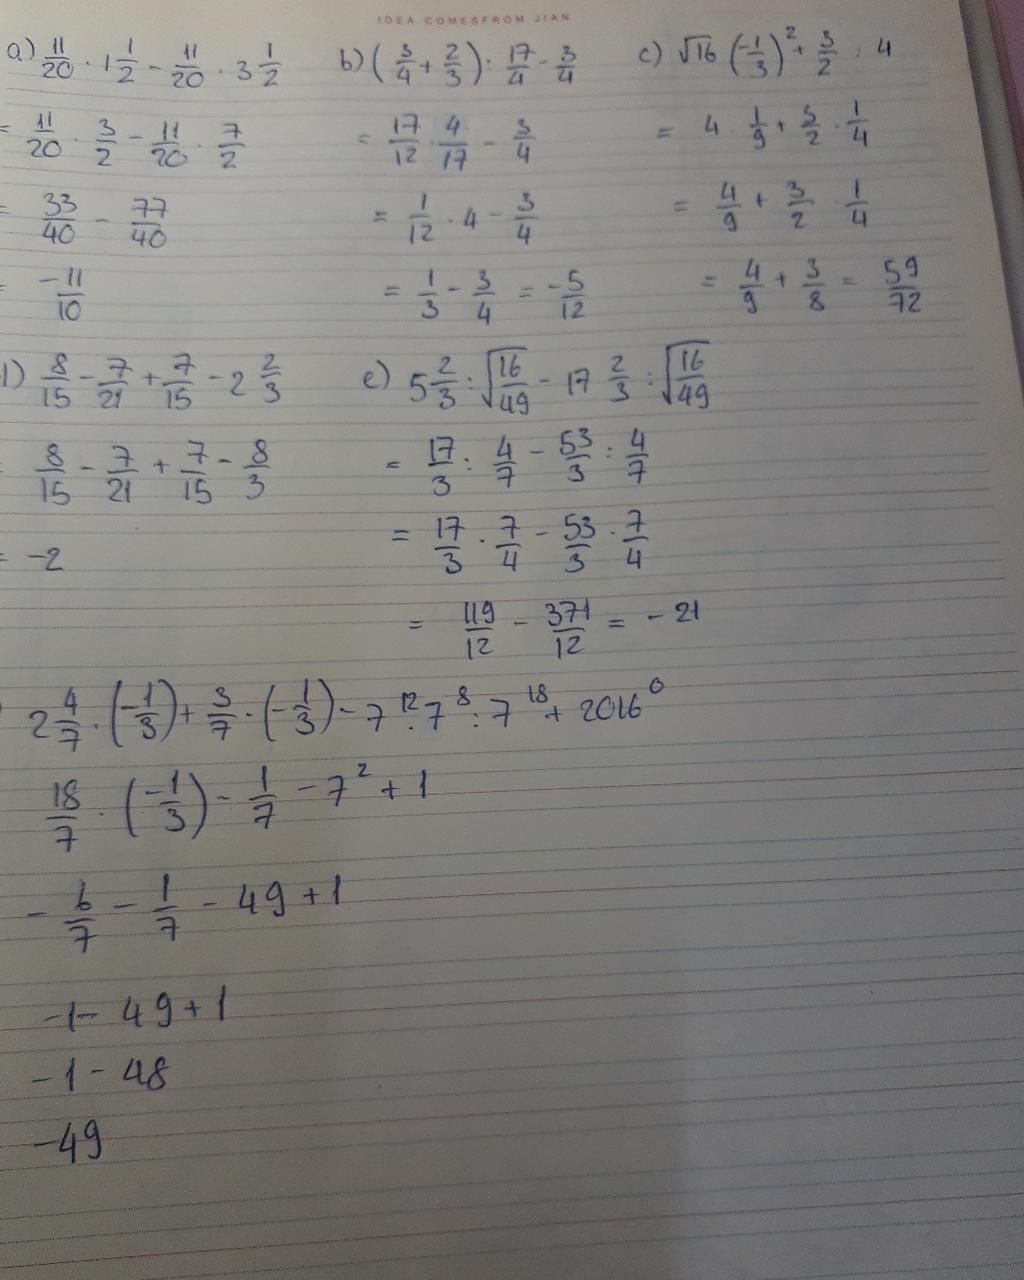 IDEA COMESFROM JIAN
a) 11/20 · 1 1/2 - 11/20 · 3 1/2
= 11/20 · 3/2 - 11/20 · 7/2
= 33/40 - 77/40
= -11/10
b) (3/4 + 2/3) : 17/4 - 3/4
= 17/12 · 4/17 - 3/4
= 1/12 · 4 - 3/4
= 1/3 - 3/4 = -5/12
c) √16 (-1/3)² + 3/2 : 4
= 4 · 1/9 + 3/2 · 1/4
= 4/9 + 3/2 · 1/4
= 4/9 + 3/8 = 59/72
) 8/15 - 7/21 + 7/15 - 2 2/3
= 8/15 - 7/21 + 7/15 - 8/3
= -2
e) 5 2/3 : √16/49 - 17 2/3 : √16/49
= 17/3 : 4/7 - 53/3 : 4/7
= 17/3 · 7/4 - 53/3 · 7/4
= 119/12 - 371/12 = -21
2 4/7 · (-1/3) + 3/7 · (-1/3) - 7¹² · 7⁸ : 7¹⁸ + 2016⁰
18/7 · (-1/3) - 1/7 - 7² + 1
- 6/7 - 1/7 - 49 + 1
-1 - 49 + 1
-1 - 48
-49